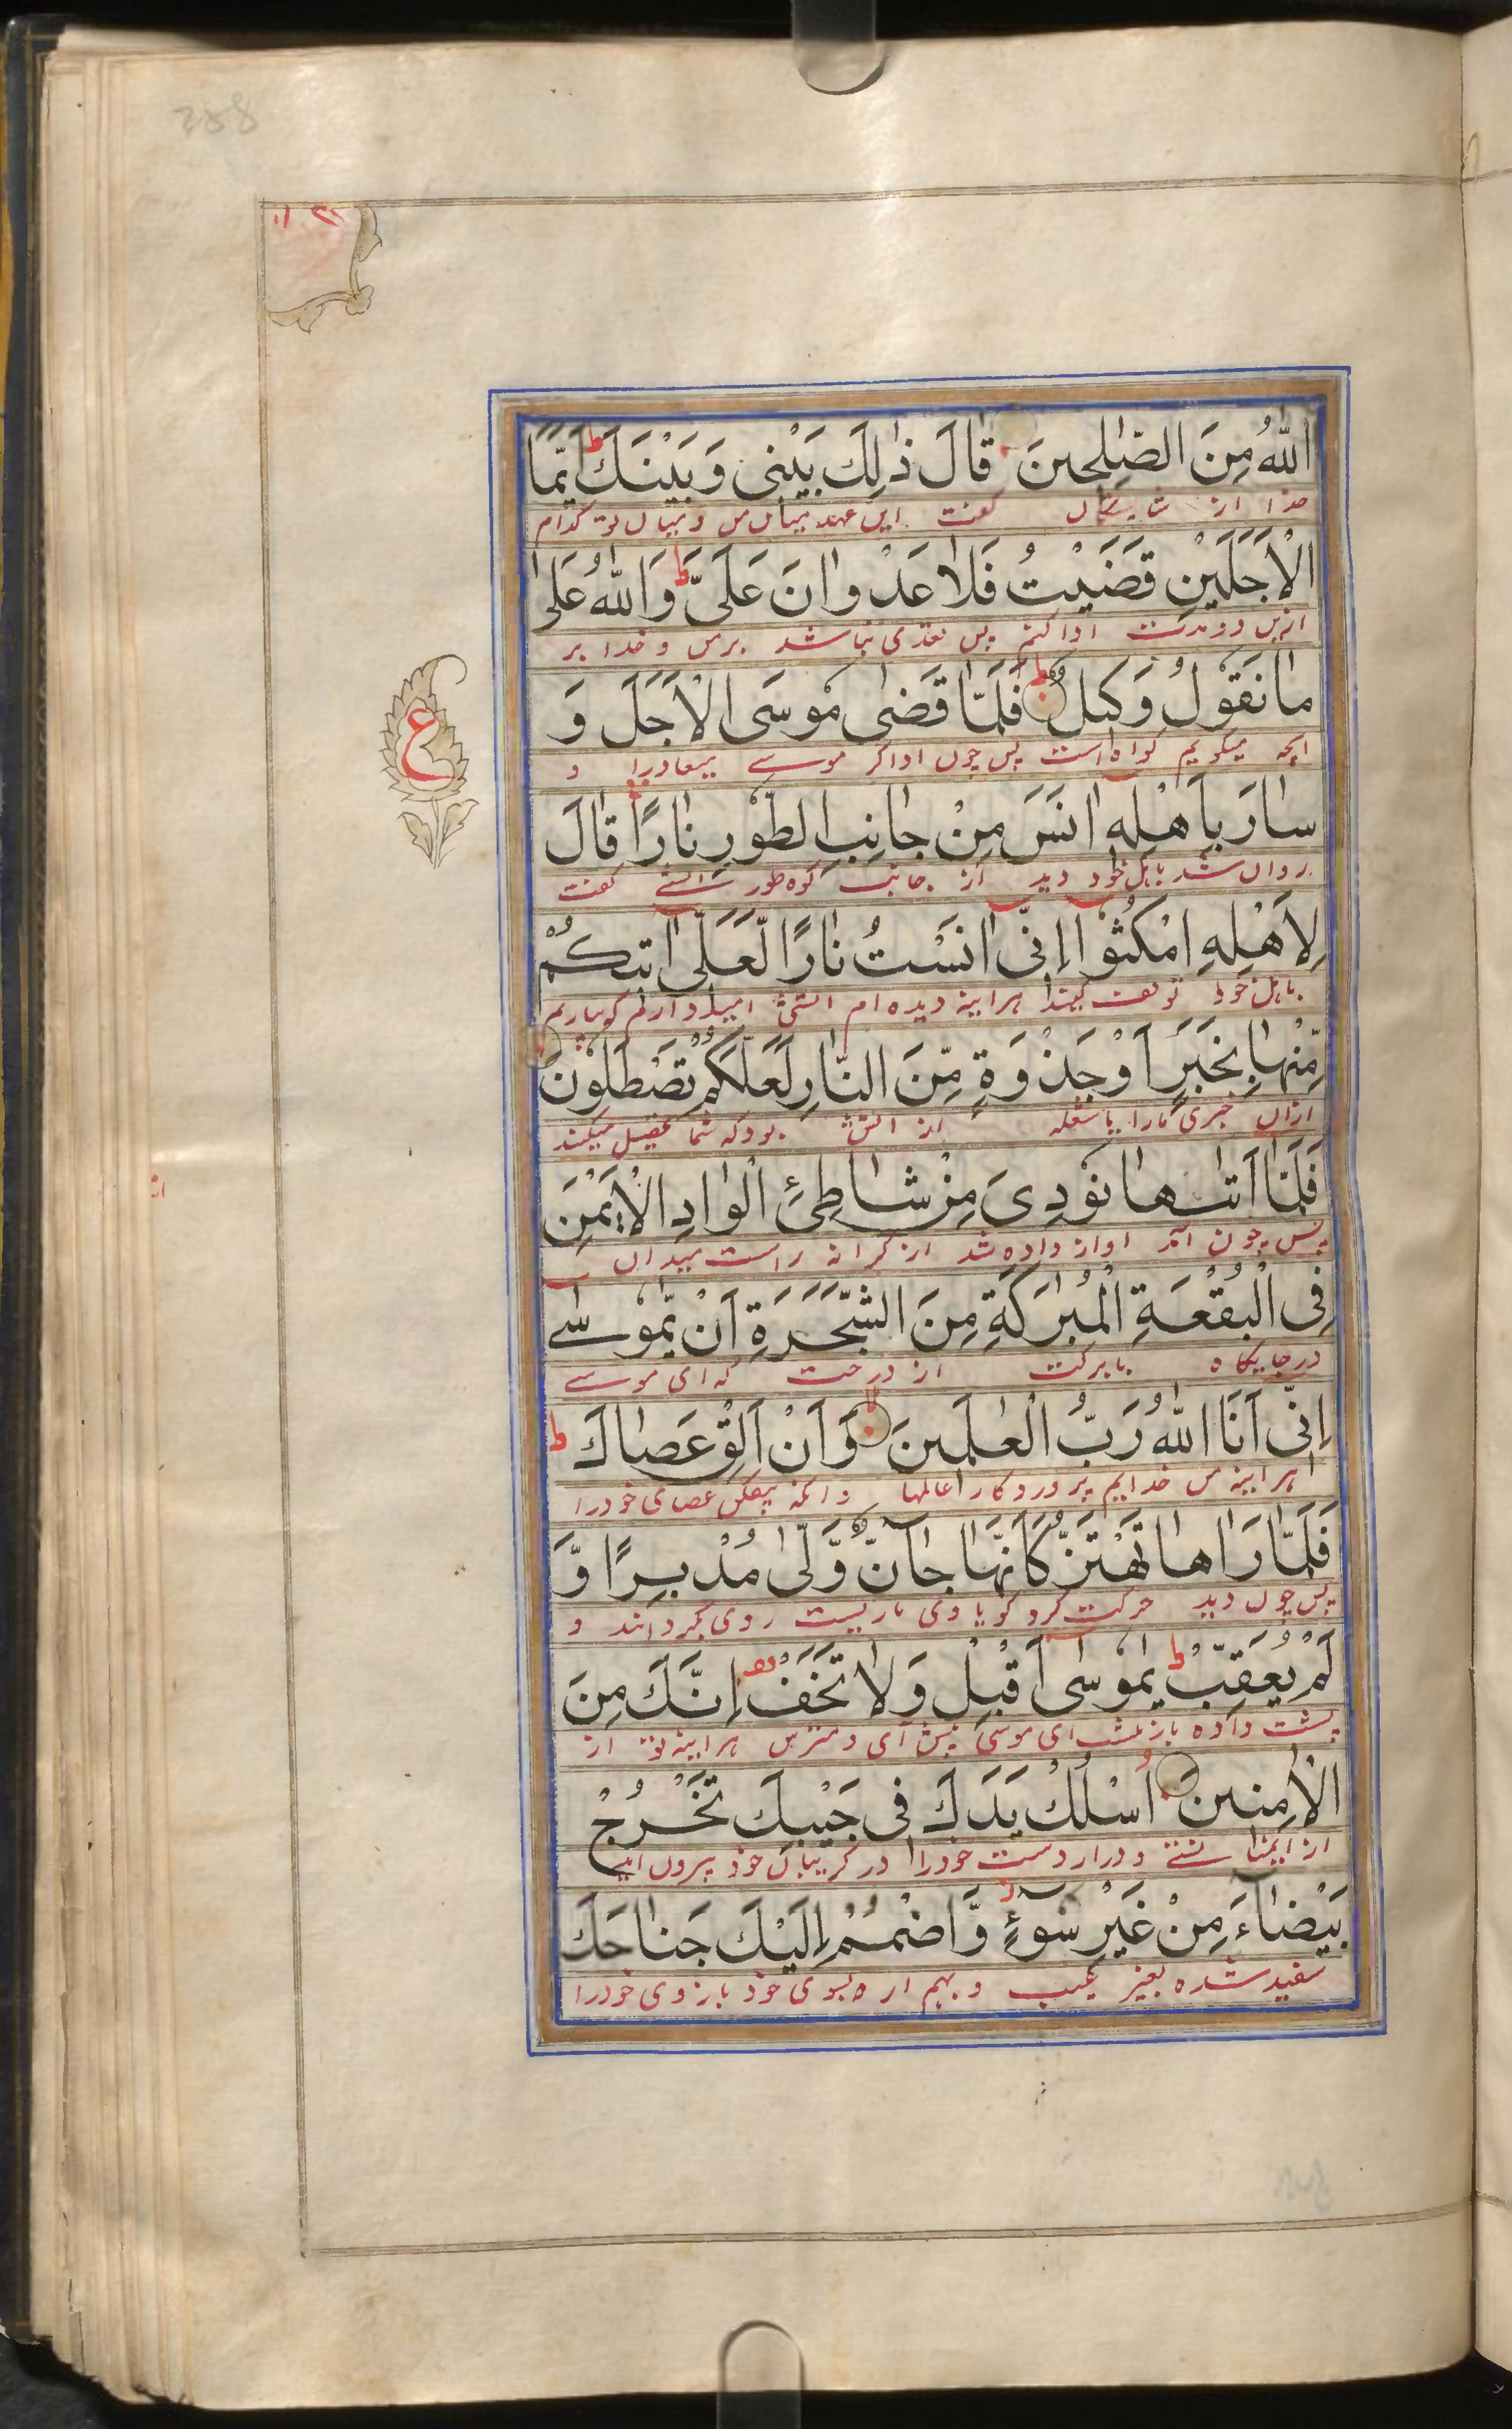 اللّٰهُ مِنَ الصّٰلِحِینَ قَالَ ذٰلِكَ بَیْنِی وَبَیْنَكَ ط اَیَّمَا
خدا از شایستگان گفت این عهد میان من و میان تو کدام
الْاَجَلَیْنِ قَضَیْتُ فَلَا عُدْوَانَ عَلَیَّ ط وَاللّٰهُ عَلٰی
ازین دو مدت ادا کنم پس تعدی نباشد بر من و خدا بر
مَا نَقُوْلُ وَكِیلٌ فَلَمَّا قَضٰی مُوْسَی الْاَجَلَ وَ
انچه میگویم گواه است پس چون ادا کر موسے میعاد را و
ع
سَارَ بِاَهْلِهٖ اٰنَسَ مِنْ جَانِبِ الطُّوْرِ نَارًا قَالَ
روان شد باهل خود دید از جانب کوه طور آتشے گفت
لِاَهْلِهِ امْكُثُوْا اِنِّی اٰنَسْتُ نَارًا لَّعَلِّی اٰتِیكُمْ
باهل خود توقف کنید هر اینه دیده ام اتشی امیدوارم که بیارم
مِّنْهَا بِخَبَرٍ اَوْ جَذْوَةٍ مِّنَ النَّارِ لَعَلَّكُمْ تَصْطَلُوْنَ
ازان خبری مارا یا شعله از اتش بود که شما تحصیل میکنید
فَلَمَّا اَتٰىهَا نُوْدِیَ مِنْ شَاطِئِ الْوَادِ الْاَیْمَنِ
پس چون آمد اواز داده شد از کرانه راست میدان
فِی الْبُقْعَةِ الْمُبٰرَكَةِ مِنَ الشَّجَرَةِ اَنْ یّٰمُوْسٰے
در جایگاه بابرکت از درخت که ای موسے
اِنِّی اَنَا اللّٰهُ رَبُّ الْعٰلَمِینَ وَاَنْ اَلْقِ عَصَاكَ ط
هر اینه من خدایم پروردگار عالمها وانکه بیفکن عصای خود را
فَلَمَّا رَاٰهَا تَهْتَزُّ كَاَنَّهَا جَآنٌّ وَّلّٰی مُدْبِرًا وَّ
پس چون دید حرکت کرد گویا وی ماریست روی بگردانند و
لَمْ یُعَقِّبْ ط یٰمُوْسٰی اَقْبِلْ وَلَا تَخَفْ اِنَّكَ مِنَ
پشت داده بازنگشت ای موسی پیش آی و مترس هر اینه تو از
الْاٰمِنِینَ اُسْلُكْ یَدَكَ فِی جَیْبِكَ تَخْرُجْ
از ایمنا نستے و درار دست خود را در گریبان خود بیرون اید
بَیْضَآءَ مِنْ غَیْرِ سُوْءٍ وَّاضْمُمْ اِلَیْكَ جَنَاحَكَ
سفید شده بغیر عیب و بهم ار بسوی خود بازوی خود را